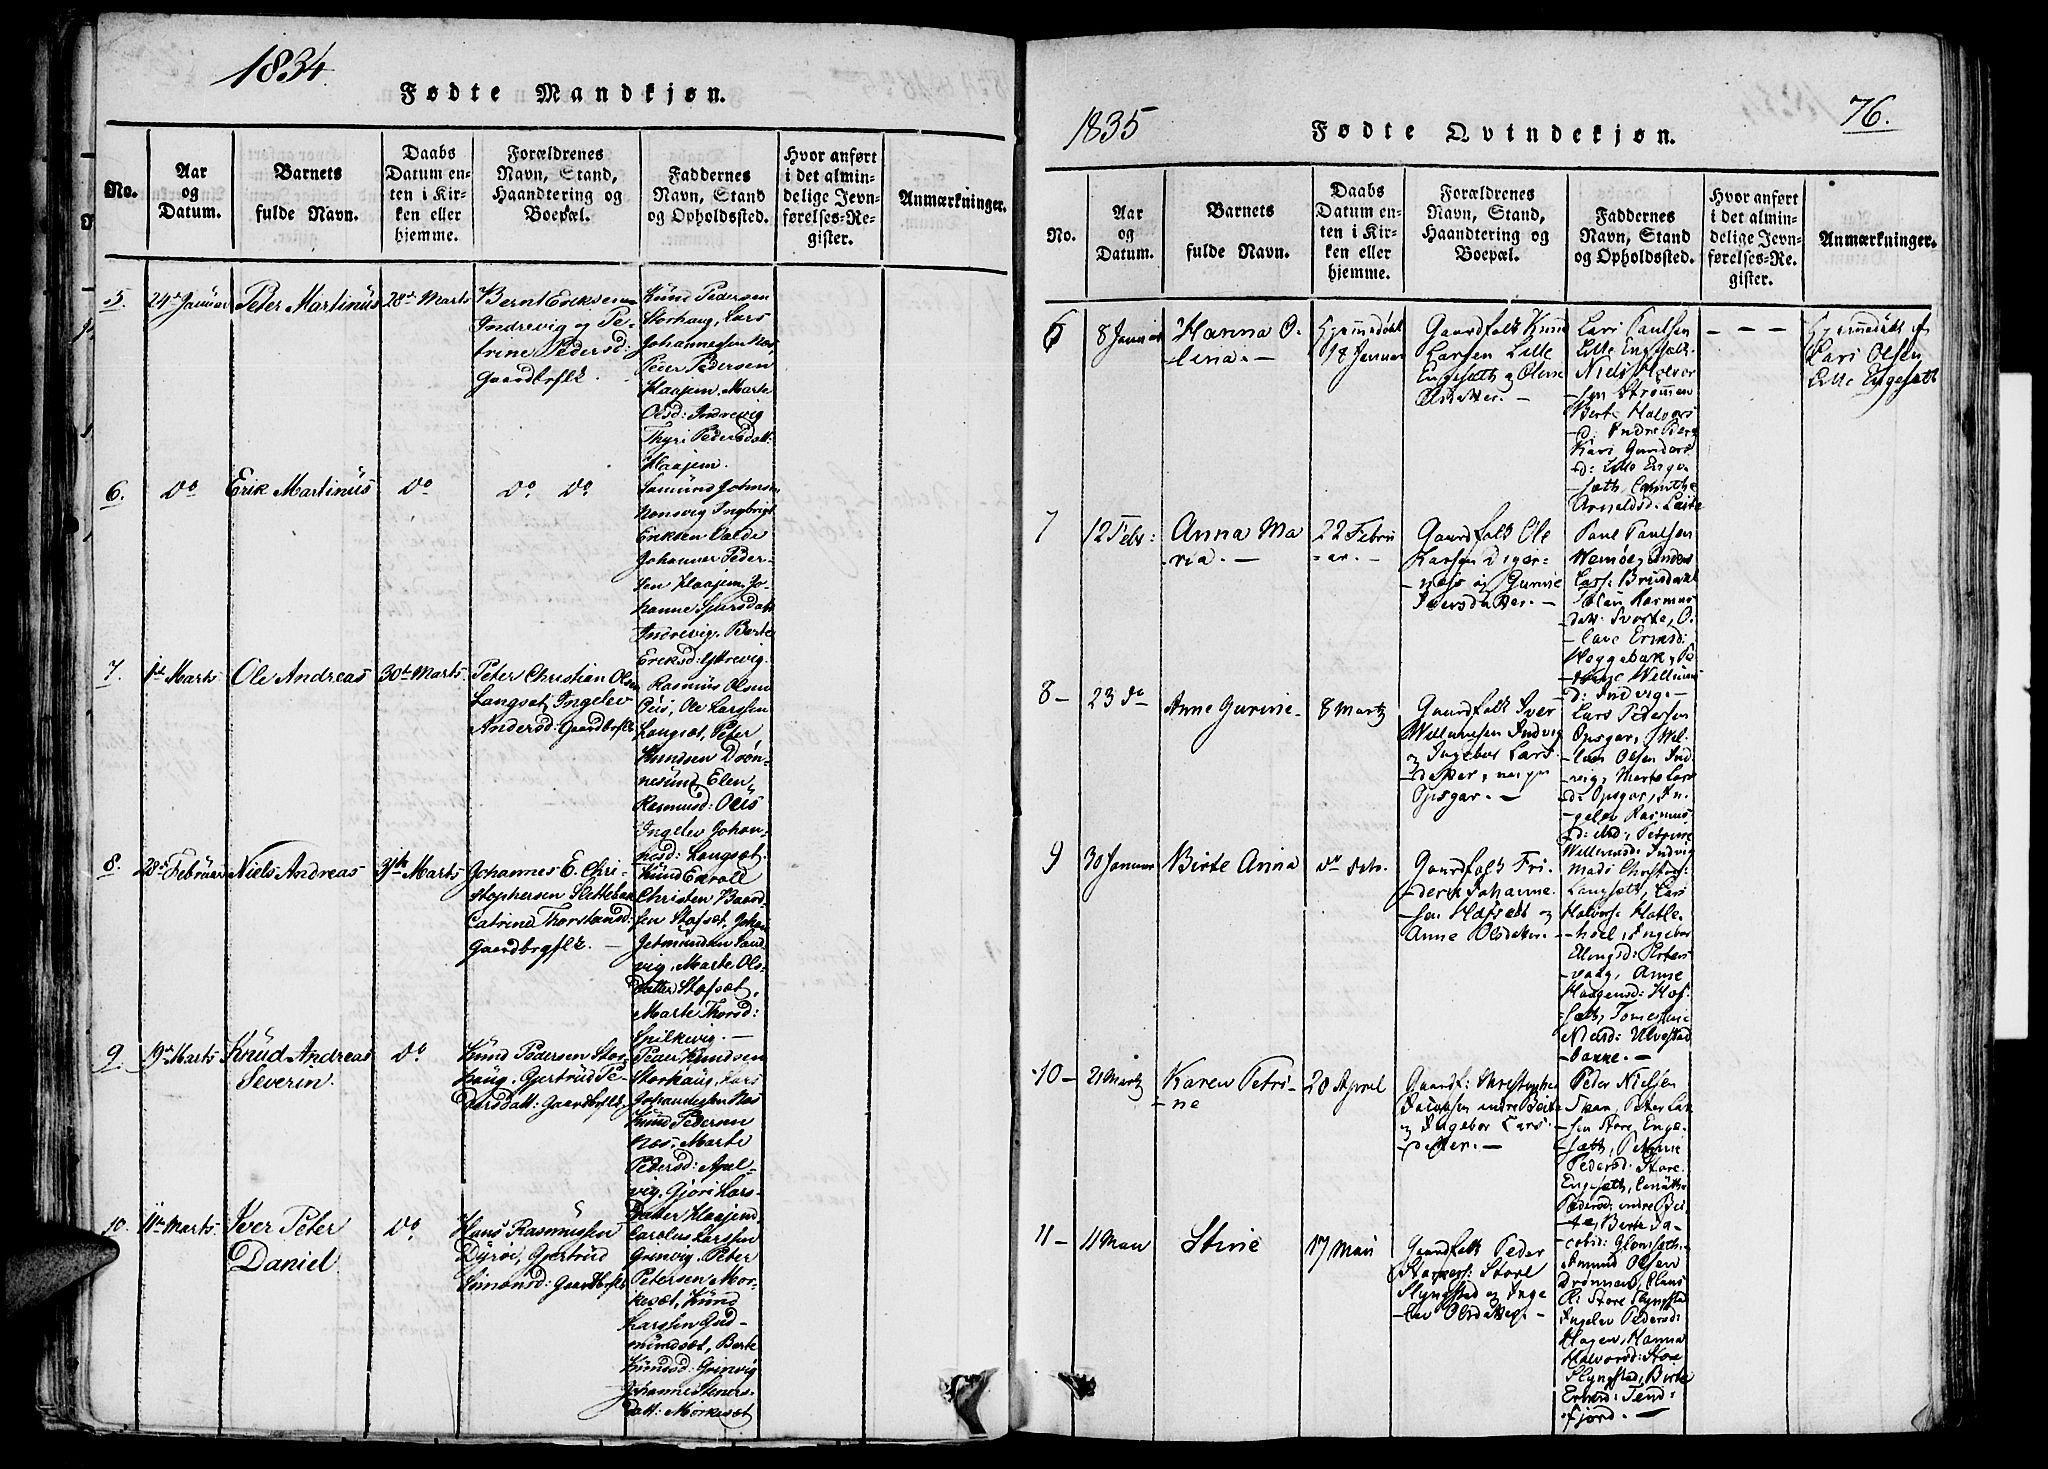 1834.
Fødte Mandkjøn.
No.
Aar
og
Datum.
Barnets
fulde Navn.
Daabs
Datum en-
ten i Kir-
ken eller
hjemme.
Forældrenes
Navn, Stand,
Haandtering og
Boepæl.
Faddernes
Navn, Stand
og Opholdssted.
Hvor anført
i det almin-
delige Jevn-
førelses-Re-
gister.
Anmærkninger.
5.
24de Januar
Peter Martinus
28de Marts
Bernt Eriksen
Indrevig og Pe-
trine Pedersd:
Gaardbrflk.
Knud Pedersen
Storhaug, Lars
Johannessen Næs,
Peder Pedersen
Klaajem, Marte
Olsd: Indrevig
Thyri Pedersdatt:
Klaajem.
6.
do
Erik Martinus
do
do do
Samund Johnsen
Nonsvig Ingbrigt
Eriksen Valde
Johannes Peder-
sen Klaajem, Jo-
hanne Sjursdatt
Indrevig, Berte
Eriksd: Yttrevig.
7.
1ste Marts
Ole Andreas
30te Marts
Peter Christian Olsen
Langsæt, Ingelev
Andersd: Gaardbrflk
Rasmus Olsen
Ole Larssen
Langsæt, Peter
Knudsen Drøn-
nesund, Elen
Rasmusd:
Ingelev Johan-
nesd: Langsæt.
8.
28de Februar
Niels Andreas
31te Marts
Johannes E. Chri-
stophersen Slettebak
Catrina Thorstensd:
Gaardbrgflk.
Knud
Christen Baard-
sen Stafsæt, Johan
Jetmundsen Sand-
vig, Marte Ols-
datter Stafsæt,
Marte Thorsd:
Spilkevig.
9.
19de Marts
Knud Andreas
Severin.
do
Knud Pedersen Stor-
haug, Gjertrud Pe-
dersdatt: Gaardbrflk.
Peder Knudsen
Storhaug, Lars
Johannessen Næs
Knud Pedersen
Næs, Marte
Pedersd: Apal-
vig, Gjøri Lars-
datter Klaajem,
10.
11te Marts
Iver Peter
Daniel
do
Hans Rasmussen
Dyrøe, Gjertrud
Simonsd: Gaardbrflk
Carolus Larssen
Grinvig, Peter
Petersen Mør-
kesæt, Knud
Larssen Gud-
mundsæt, Berte
Knudsd: Grinvig
Johanne Steners-
datt: Mørkesæt
1835
Fødte Qvindekjøn.
76.
No.
Aar
og
Datum.
Barnets
fulde Navn.
Daabs
Datum en-
ten i Kir-
ken eller
hjemme.
Forældrenes
Navn, Stand,
Haandtering og
Boepæl.
Faddernes
Navn, Stand
og Opholdssted.
Hvor anført
i det almin-
delige Jevn-
førelses-Re-
gister.
Anmærkninger.
6
8 Januar
Hanna O-
lina. —
Hjemmedøbt
18 Januar
Gaardfolk Knud
Larsen Lille
Engesæth og Oline
Olsdatter. —
Lars Paulsen
Lille Engesæth.
Niels Halvor
-sen Strømmen
Berte Halvors
-d: Indre Berg
Kari Gunders
-d: Lille Enge-
-sæth,
Arnoldsd: Leite
— — —
Hjemmedøbt af
Lars Olsen
Lille Engesæth
7
12 Febr:
Anna Ma
-ria. —
22 Febru
-ar. —
Gaardfolk Ole
Larsen Diger-
-næs og Gurine
Iversdatter. —
Paul Paulsen
Hemøe, Anders
Lars: Brusdahl
Rasmus
datt: Svorte, O-
-lave Eriksd:
Hoggebak,
Willums
d: Indvig. —
8 —
23 do
Anne Gurine —
8 Martz
Gaardfolk Iver
Willumsen Indvig
og Ingebor Lars-
-datter,
Opsgar. —
Lars Petersen
Opsgar, Wil-
-lum Olsen Ind-
-vig, Marte Lars
d: Opsgar, In-
-gelev Rasmus-
-d: ibid, Petrine
Willumsd: Indvig
9
30 Januar
Birte Anna
do
Gaardfolk Fri-
-derik Johanne-
-sen Hafsæt og
Anne Olsdatter. —
Mads Christens:
Langsæth, Lars
Halvors: Hatle-
-hoel, Ingebor
Elingsd:
-vaag, Anne
Haagensd: Haf-
-sæth,
Nielsd: Ulvestad
bakke. —
10 —
21 Martz
Karen Petri-
-ne
20 April
Gaardf: Christopher
Jacobsen indre Beite
og Ingebor Lars-
-datter. —
Peder Nielsen
Skaar, Peter Lar-
-sen Store Enge-
-sæth, Petrine
Pedersd: Store
Engesæth,
Pedersd: indre Bei-
-te, Berte Ja-
-cobsd: Glomsæth
11 —
11 Maii
Stine
17 Maii
Gaardfolk Peder
Store
Slyngstad og Inge
-lev Olsdatter. —
Amund Olsen
Drønnæs, Claus
O: Store Slyngstad
Ingelev Pedersd:
Hagen, Hanna
Halvorsd: Store
Slyngstad, Birte
Eriksd: Tend-
-fjord. —